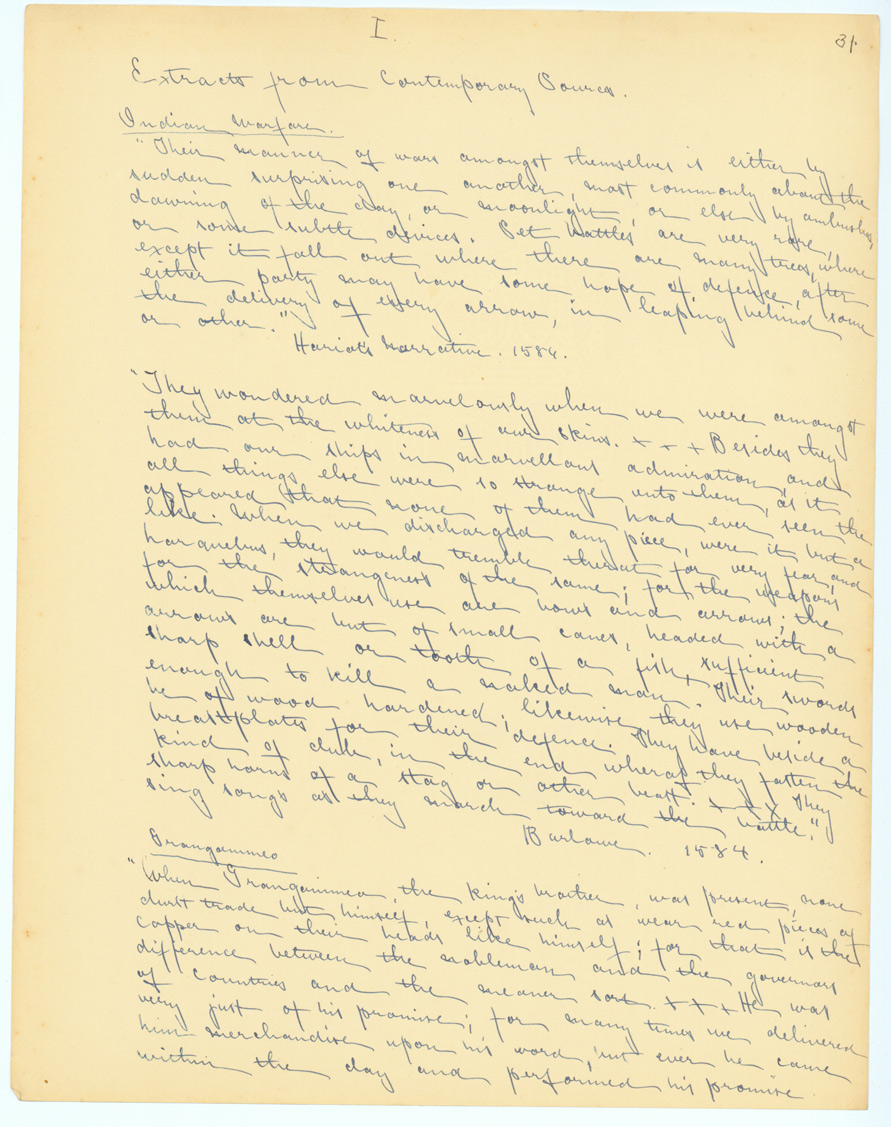 I.
31.
Extracts from Contemporary Sources.
Indian Warfare.
"Their manner of wars amongst themselves is either by
sudden surprising one another, most commonly about the
dawning of the day, or moonlight, or else by ambushes,
or some subtle devices. Set battles are very rare,
except it fall out where there are many trees, where
either party may have some hope of defence, after
the delivery of every arrow, in leaping behind some
or other."
Hariot's Narrative. 1584.
"They wondered marvelously when we were amongst
them at the whiteness of our skins. x x x Besides they
had our ships in marvellous admiration, and
all things else were so strange unto them, as it
appeared that none of them had ever seen the
like. When we discharged any piece, were it but a
harquebus, they would tremble thereat for very fear, and
for the strangeness of the same; for the weapons
which themselves use are bows and arrows; the
arrows are but of small canes, headed with a
sharp shell or tooth of a fish, sufficient
enough to kill a naked man. Their swords
be of wood hardened; likewise they use wooden
breastplates for their defence. They have beside a
kind of club, in the end whereof they fasten the
sharp horns of a stag or other beast. x x x They
sing songs as they march toward the battle."
Barlowe. 1584.
Grangammeo
"When Grangammeo, the king's brother, was present, none
durst trade but himself, except such as wear red pieces of
copper on their heads like himself; for that is the
difference between the nobleman and the governors
of countries and the meaner sort. x x x He was
very just of his promise; for many times we delivered
him merchandise upon his word, but ever he came
within the day and performed his promise